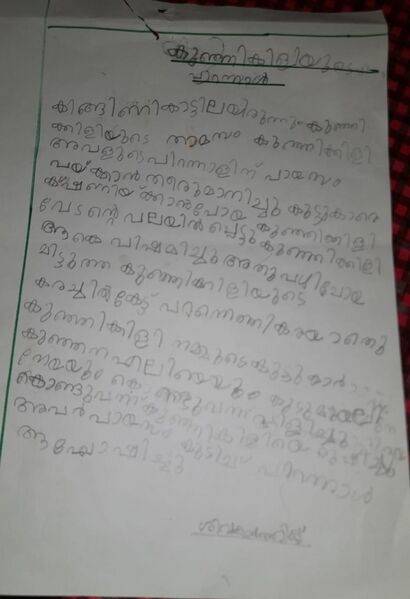 കുഞ്ഞികിളിയുടെ
പിറന്നാൾ
കിങ്ങിണികാട്ടിലയിരുന്നു കുഞ്ഞി
ക്കിളിയുടെ താമസം കുഞ്ഞിക്കിളി
അവളുടെ പിറന്നാളിന് പായസം
പയ്ക്കാൻ തീരുമാനിച്ചു കൂട്ടുകാരെ
ക്ഷണിയ്ക്കാൻപോയ കുഞ്ഞിക്കിളി
വേടന്റെ വലയിൽ പ്പെട്ടു കുഞ്ഞിക്കിളി
ആകെ വിഷമിച്ചു അതുവഴിപോയ
മിട്ടുതത്ത കുഞ്ഞിക്കിളിയുടെ
കരച്ചിൽകേട്ട് പറന്നെത്തി കരയാതെ
കുഞ്ഞിക്കിളി നമ്മുടെ കൂട്ടുകാർ
കുഞ്ഞനെലിയെയും
കൊണ്ടുവന്ന് കുഞ്ഞികിളിയെ രക്ഷിച്ചു
അവർ പായസം കുടിച്ച് പിറന്നാൾ
ആഘോഷിച്ചു